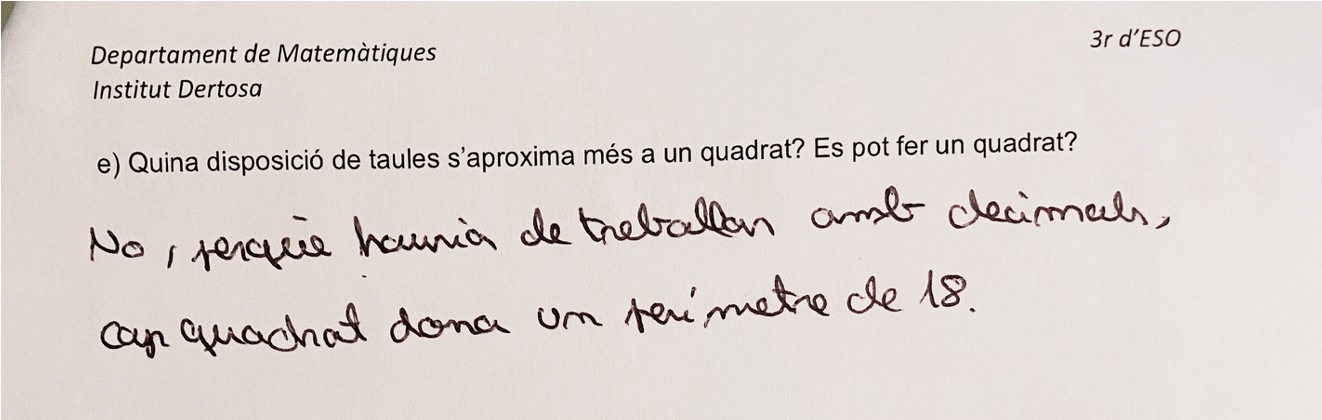 Departament de Matemàtiques
3r d'ESO
Institut Dertosa
e) Quina disposició de taules s'aproxima més a un quadrat? Es pot fer un quadrat?
No, perquè hauria de treballar amb decimals,
cap quadrat dona un perímetre de 18.